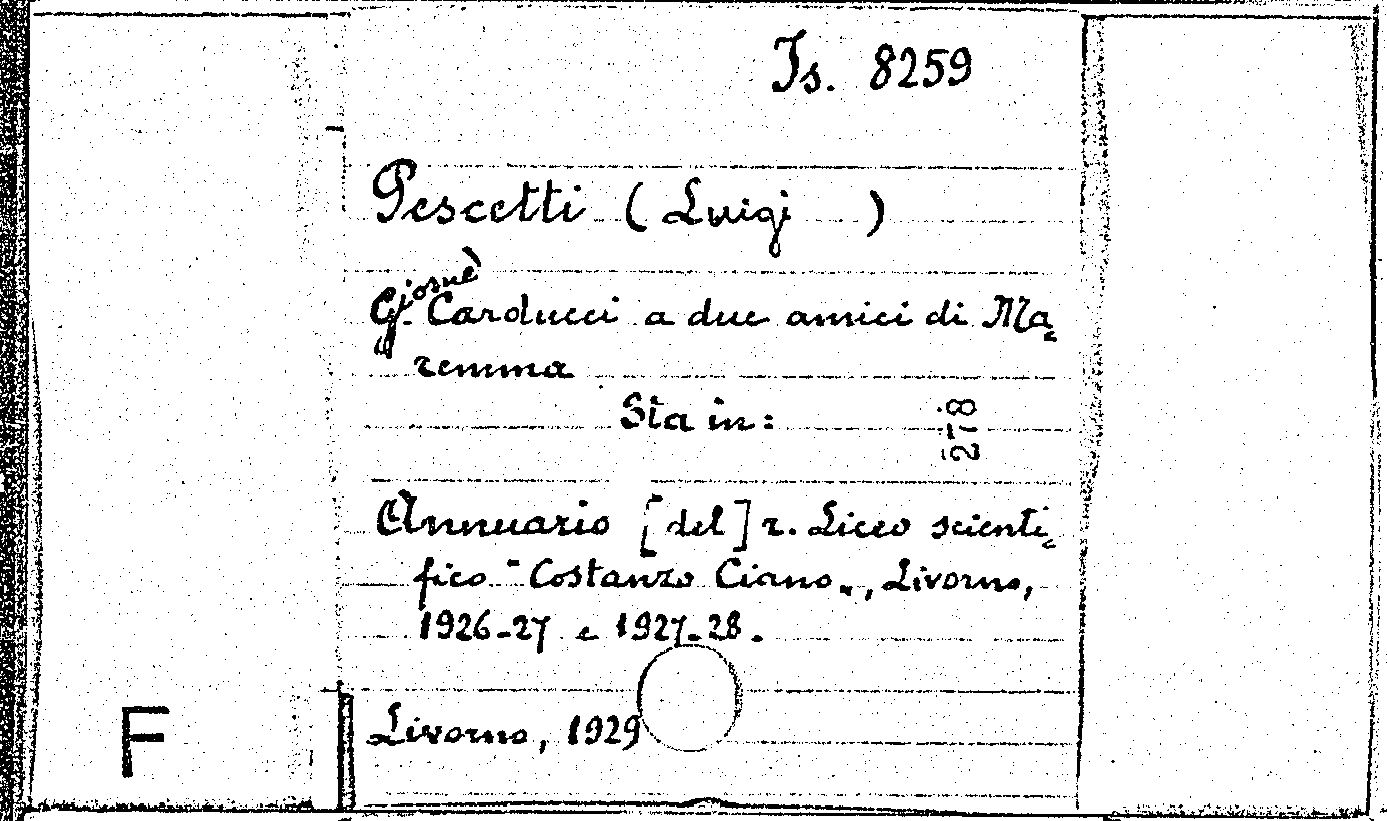 Is. 8259
Pescetti (Luigi )
Giosuè
G. Carducci a due amici di Ma=
remma
Sta in:
278
Annuario [del] r. Liceo scienti=
fico "Costanzo Ciano", Livorno,
1926-27 e 1927-28.
Livorno, 1929
F